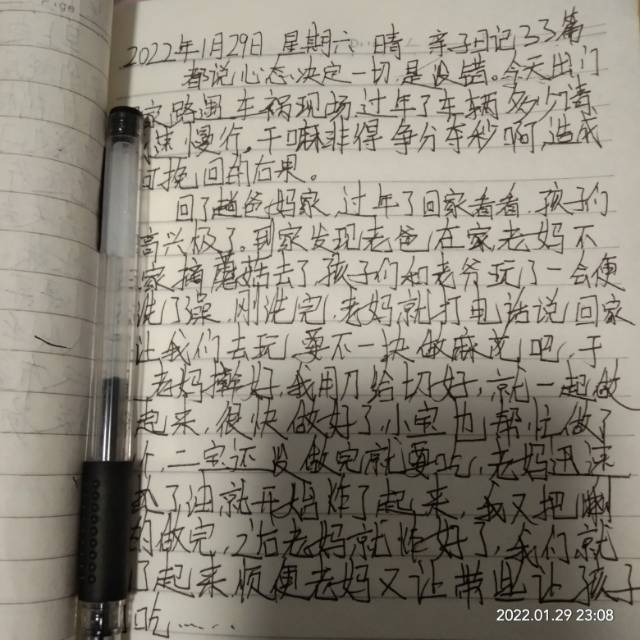 2022年1月29日 星期六 晴 亲子日记33篇
都说心态决定一切是没错。今天出门
路遇车祸现场过年了车辆多
慢行,干嘛非得争分夺秒啊,造成
挽回的后果。
回了趟爸妈家,过年了回家看看,孩子们
高兴极了。到家发现老爸在家,老妈不
家摘蘑菇去了,孩子们和老爷玩了一会便
洗了澡,刚洗完,老妈就打电话说回家
让我们去玩,要不一块做麻花吧,于
老妈擀好,我用刀给切好,就一起做
起来,很快做好了,小宝也帮忙做了
二宝还没做完就要吃,老妈迅速
了油就开始炸了起来,我又把剩
的做完,之后老妈就炸好了,我们就
了起来顺便老妈又让带些让孩子
吃......
2022.01.29 23:08